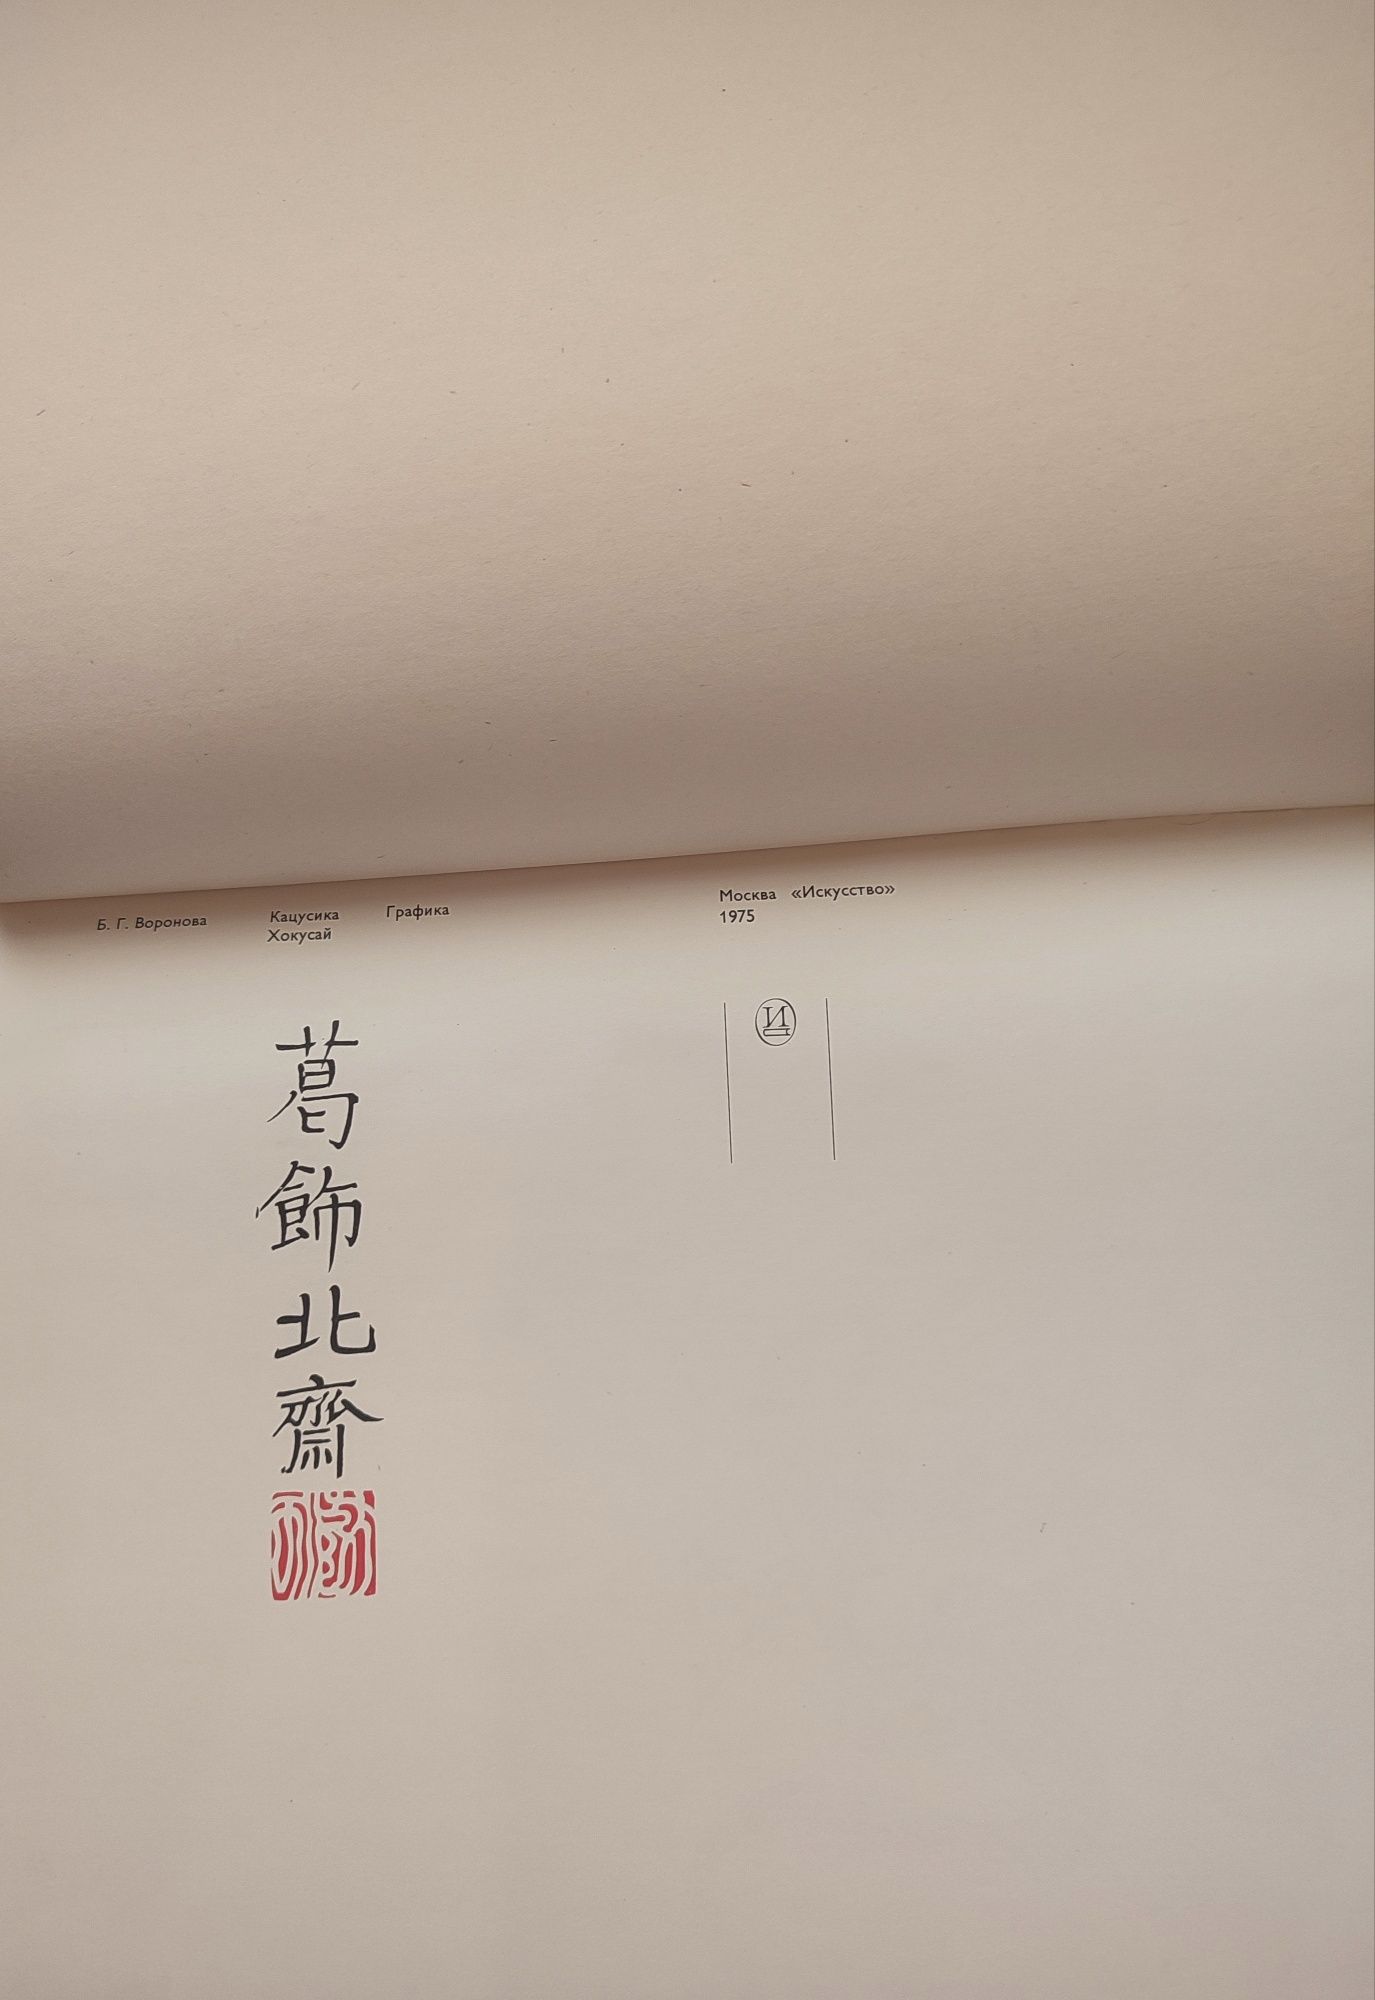 Б. Г. Воронова
Кацусика
Хокусай
Графика
Москва «Искусство»
1975
И
葛飾北齋